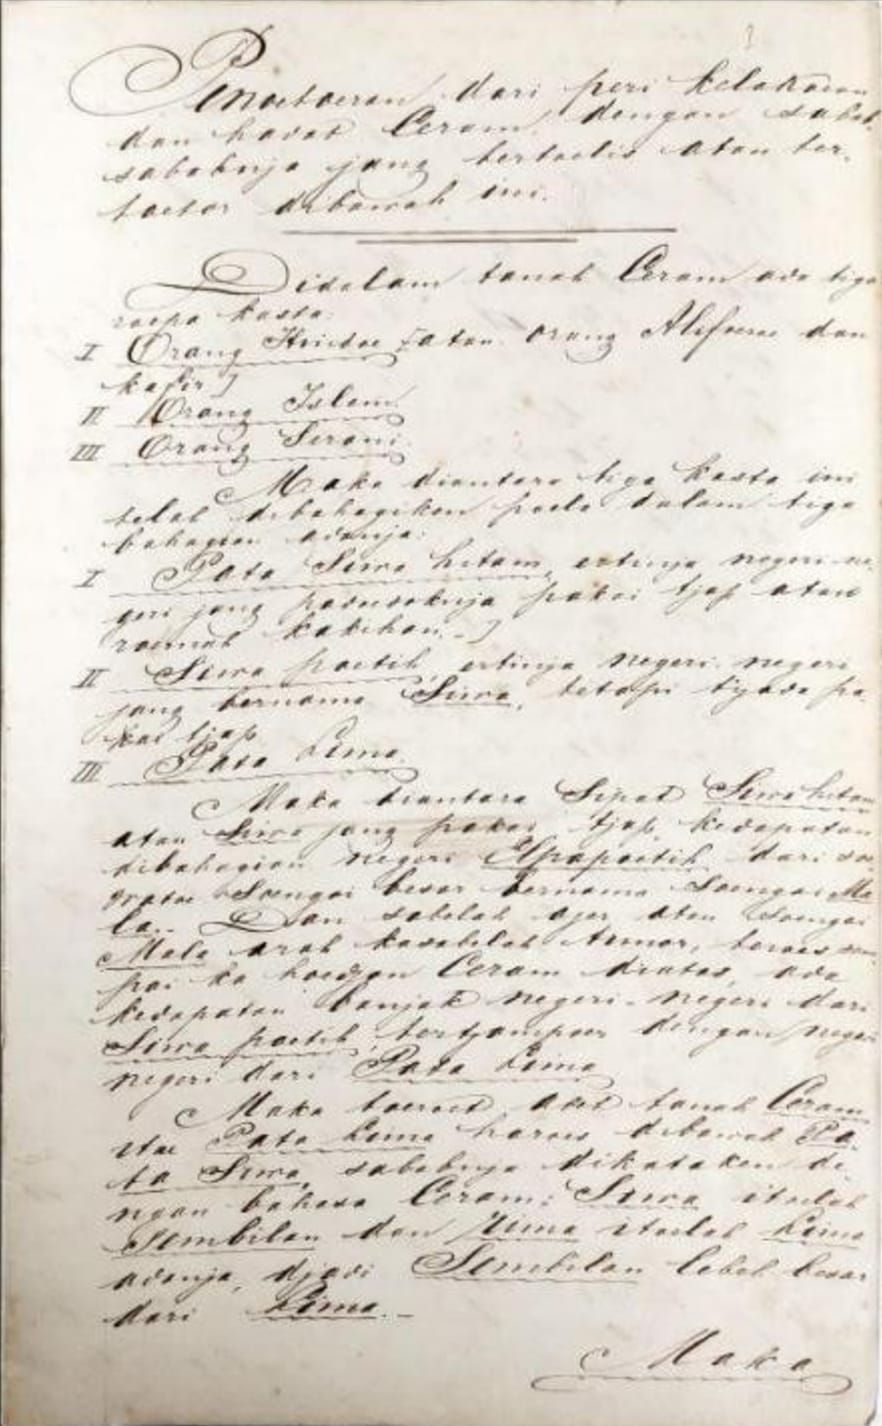 1
Penoetoeran dari peri kelakoean
dan hadat Ceram, dengan sabab
sababnja jang tertoelis atau ter-
toetor dibawah ini.
Didalam tanah Ceram ada tiga
roepa kasta:
I Orang Hindoe [atau orang Alifoeroe dan
kafir]
II Orang Islam.
III Orang Serani.
Maka diantara tiga kasta ini
telah dibahagiken poela dalam tiga
bahagian adanja:
I Pata Siwa hitam, ertinja negeri-ne-
geri jang pendoedoeknja pakai tjap atau
roemah kakihan.-]
II Siwa poetih, ertinja negeri-negeri
jang bernama Siwa, tetapi tijada pa-
kai tjap
III Pata Lima.
Maka diantara Sipat Siwa hitam
atau Siwa jang pakai tjap, kedapatan
dibahagian negeri Elpapoetih dari
Soengai besar bernama Soengai Ma-
la.. Dan sabelah ajer atau Soengai
Mala arah kasabelah timor, teroes sam-
pai ka hoedjoen Ceram diatas, ada
kedapatan banjak negeri-negeri dari
Siwa poetih, bertjampoer dengan negeri
negeri dari Pata Lima
Maka toeroet adat tanah Ceram
itoe Pata Lima haroes dibawah Pa-
ta Siwa, sababnja dikataken de-
ngan bahasa Ceram: Siwa itoelah
Sembilan dan Lima itoelah Lima
adanja, djadi Sembilan lebeh besar
dari Lima.-
Maka